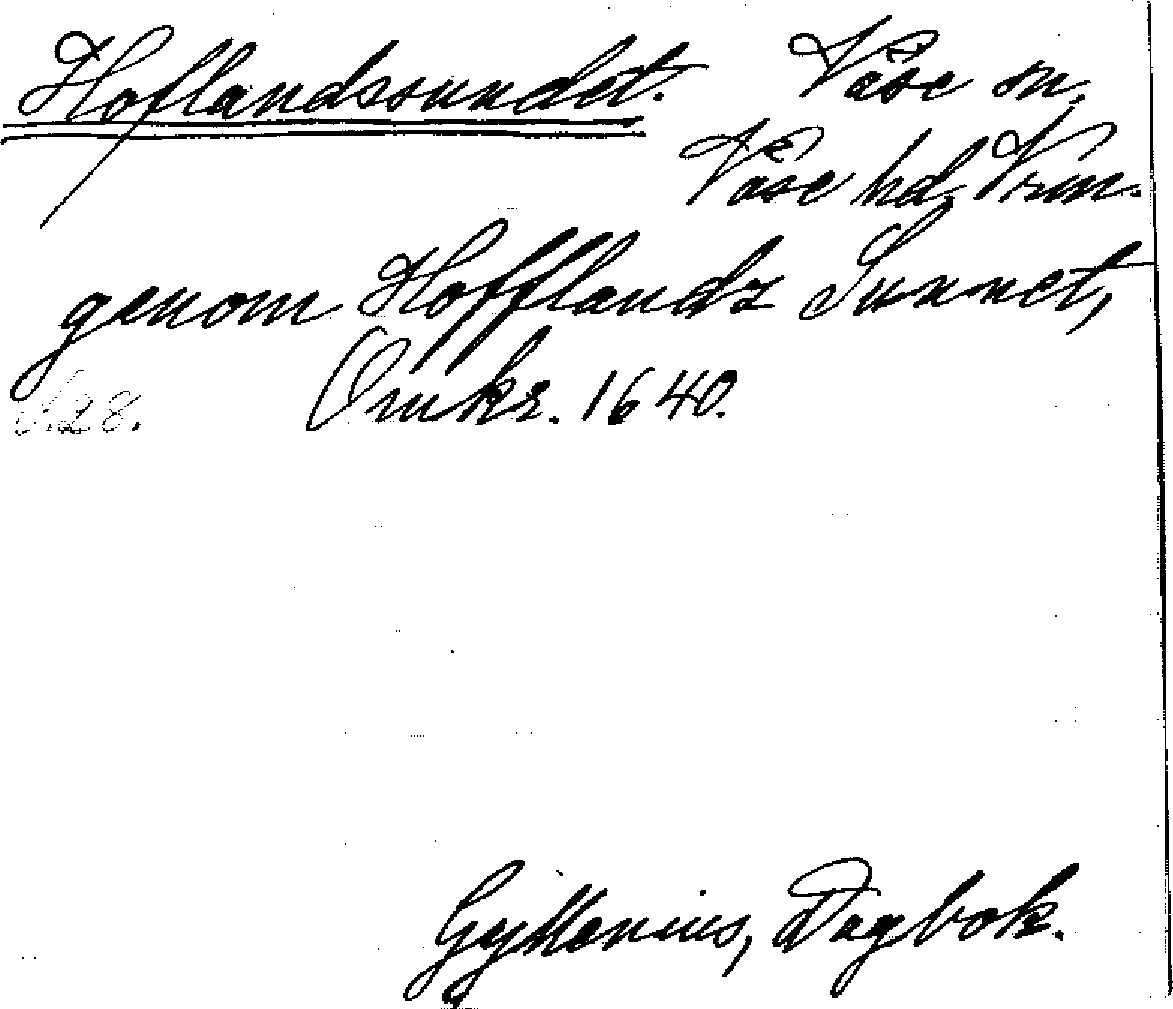 Hoflandssundet. Väse sn,
Väse hd, Vrm.
genom Hofflandz Sunnet,
Omkr. 1640.
s. 28.
Gyllenius, Dagbok.